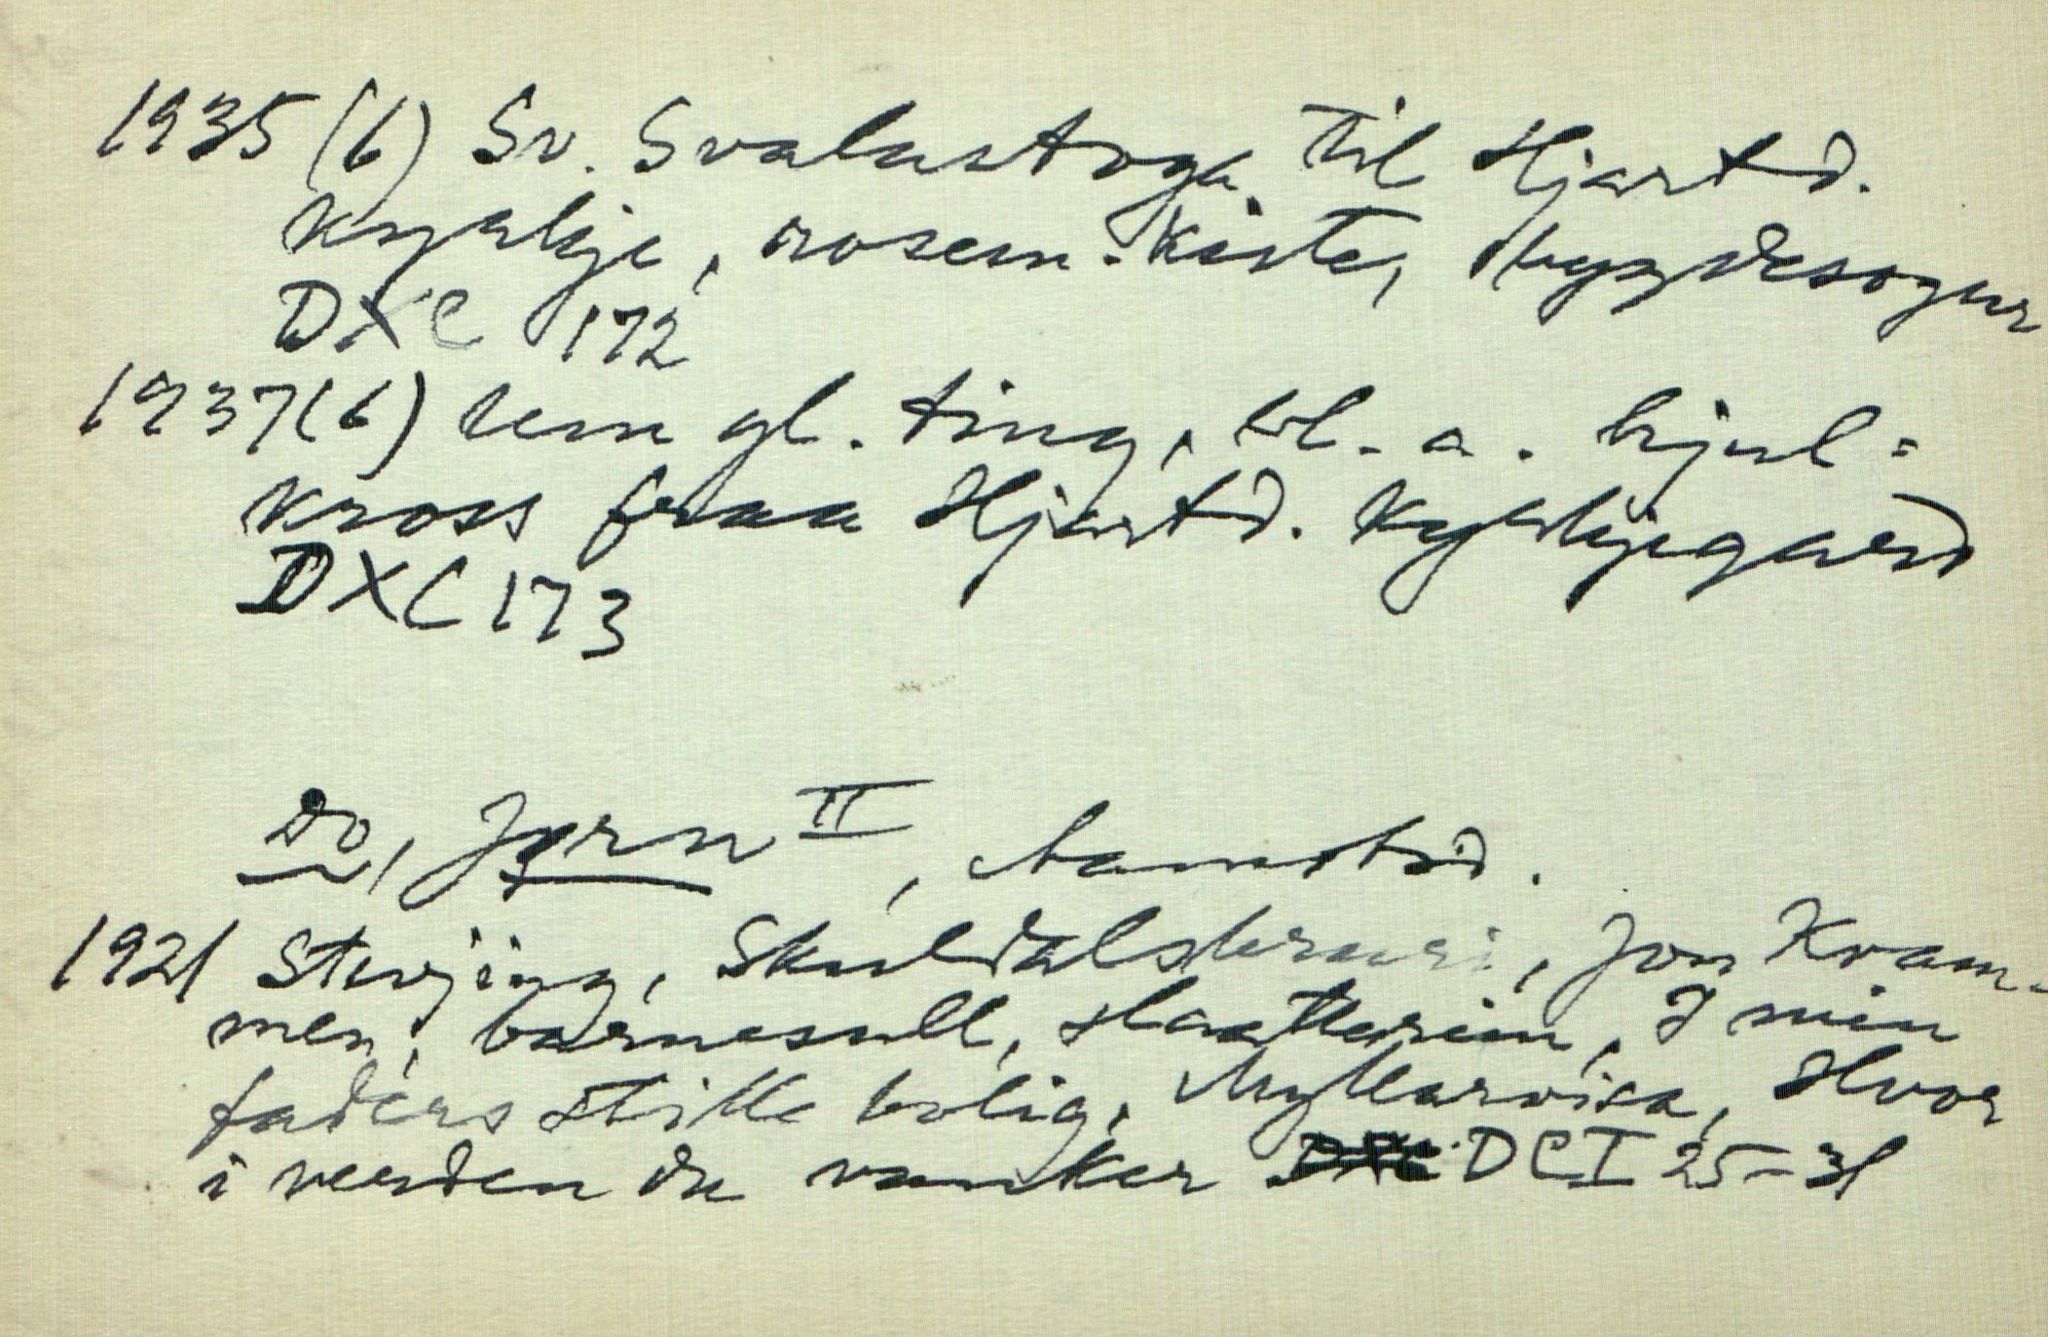 1935 (6) Sv. Svalastoga. Til Hjartd.
kyrkje, rosem. kiste, bygdesogur
DXC 172
1937 (6) Um gl. ting, bl. a. hjul=
kross fraa Hjartd. Kyrkjegard
DXC 173
Do, Jørn II, Aamotsd.
1921 Stevjing, Skuldalsbruri, Jon Kvam-
men, barnesull, slaatterim, I min
faders stille bolig, Myllarvisa, Hvor
i verden du vanker DCI 25-31